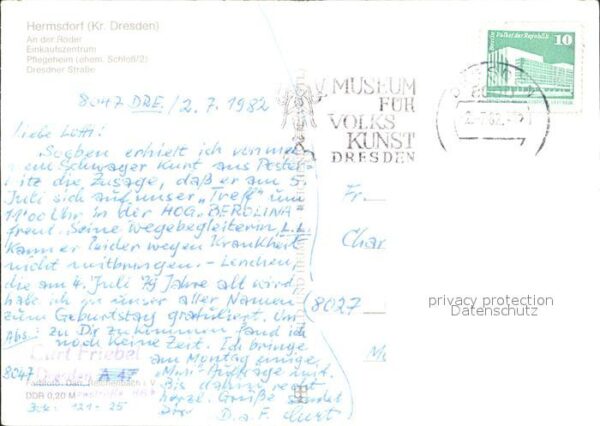 Hermsdorf (Kr. Dresden)
An der Röder
Einkaufszentrum
Pflegeheim (ehem. Schloß/2)
Dresdner Straße
10
Palast der Republik
MUSEUM
FÜR
VOLKS
KUNST
DRESDEN
8047 DRE./2.7.1982
Liebe Lotti:
Soeben erhielt ich von mei-
nem Schwager Kurt aus
die Zusage, daß er am 5.
Juli sich auf unser "Treff" um
11'00 Uhr in der HOG. BEROLINA
freut. Seine Wegebegleiterin L.L.
kann er leider wegen Krankheit
nicht mitbringen.- Lenchen,
die am 4. Juli 79 Jahre alt wird
habe ich in unser aller Namen
zum Geburtstag gratuliert. Um
zu Dir zu kommen fand ich
noch keine Zeit. Ich bringe
am Montag einige
mit.
Bis dahin recht
herzl. Grüße sendet
Kurt
Abs.:
Curt Friebel
8047 Dresden A 47
Reichenbach i. V.
DDR 0,20 M
121-25
Fr.
Char
8027
privacy protection
Datenschutz